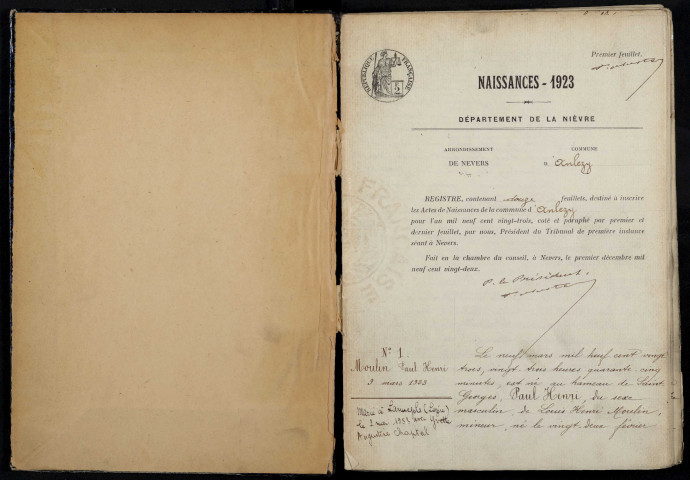 Premier feuillet.
RÉPUBLIQUE FRANÇAISE
NAISSANCES - 1923
DÉPARTEMENT DE LA NIÈVRE
ARRONDISSEMENT COMMUNE
DE NEVERS d'Anlezy
REGISTRE, contenant douze feuillets, destiné à inscrire
les Actes de Naissances de la commune d'Anlezy
pour l'an mil neuf cent vingt-trois, coté et paraphé par premier et
dernier feuillet, par nous, Président du Tribunal de première instance
séant à Nevers.
Fait en la chambre du conseil, à Nevers, le premier décembre mil
neuf cent vingt-deux.
P. le Président.
N° 1
Moulin Paul Henri
9 mars 1923
Marié à
le 2 mai avec Yvette
Augustine Chaptal
Le neuf mars mil neuf cent vingt
trois, vingt trois heures quarante cinq
minutes, est né au hameau de Saint
Georges, Paul Henri, du sexe
masculin, de Louis Henri Moulin,
mineur, né le vingt deux février